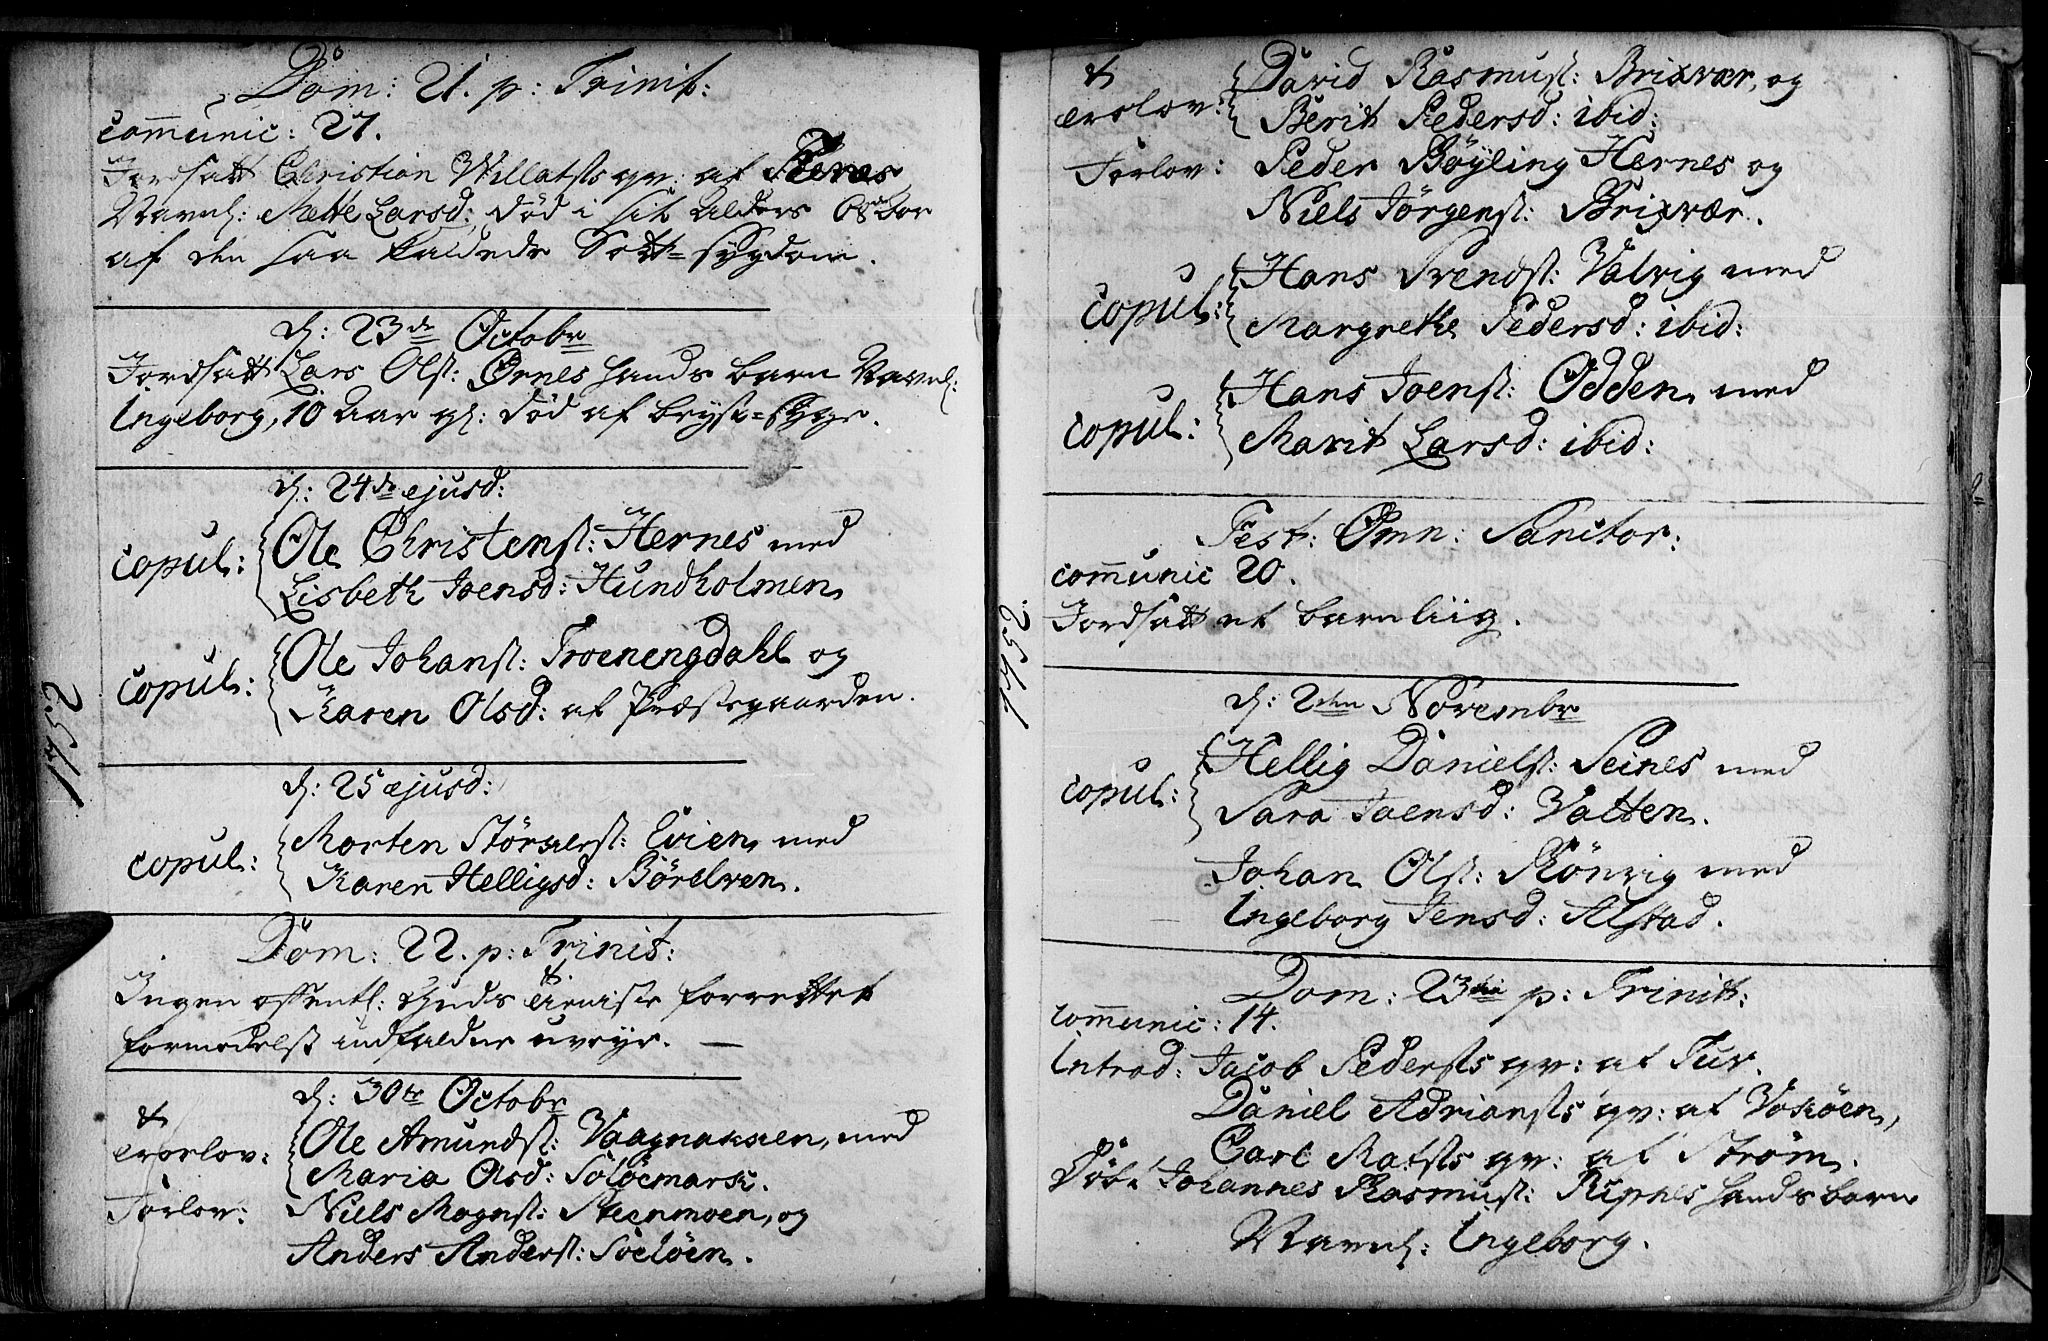 Dom: 21. p: Trinit:
com̄unic: 27.
Jordsatt Christian Willatsøs qv: af
Navnl: Mette Larsd: død i sit Alders 68de Aar
af den saa kaldede Sott-sygdom.
d: 23de Octobr
Jordsatt Lars Olss: Ørnes hands barn Navnl:
Ingeborg, 10 Aar gl: død af bryst-syge.
d: 24de ejusd:
copul:
Ole Christenss: Hernes med
Lisbeth Joensd: Hundholmen
copul:
Ole Johanss: Troenengdahl og
Karen Olsd: af Præstegaarden.
d: 25 ejusd:
copul:
Morten Størkerss: Evien med
Karen Helligsd: Børelven.
Dom: 22. p: Trinit:
Ingen offentl: Guds tieniste forrettet
formedelst indfaldne uveyr.
d: 30te October
&
trorlov:
Ole Amundss: Vaagnaksien, med
Maria Olsd: Soløemark.
Forlov:
Niels Magnss: Steenmoen, og
Anders Anderss: Soeløen.
1752
&
trolov:
David Rasmuss: Brixvær, og
Berit Pedersd: ibid:
Forlov:
Peder Bøyling Hernes og
Niels Jørgenss: Brixvær.
copul:
Hans Svendss: Valvig med
Margrethe Pedersd: ibid:
copul:
Hans Joenss: Odden, med
Marit Larsd: ibid:
Fest: Omn: Sanctor:
com̄unic 20.
Jordsatt et barnliig.
d: 2den Novembr
copul:
Hellig Danielss: Seines med
Sara Joensd: Vatten.
Johan Olss: Rönvig med
Ingeborg Jensd: Alstad.
Dom: 23tia p: Trinit:
com̄unic: 14.
Introd: Jacob Pedersøs qv: af Tuv.
Daniel Adriansøs qv: af Voxøen,
Carl Matsøs qv: af Strøm.
Døbt Johannes Rasmuss: Ripnes hands barn
Navnl: Ingeborg.
1752.